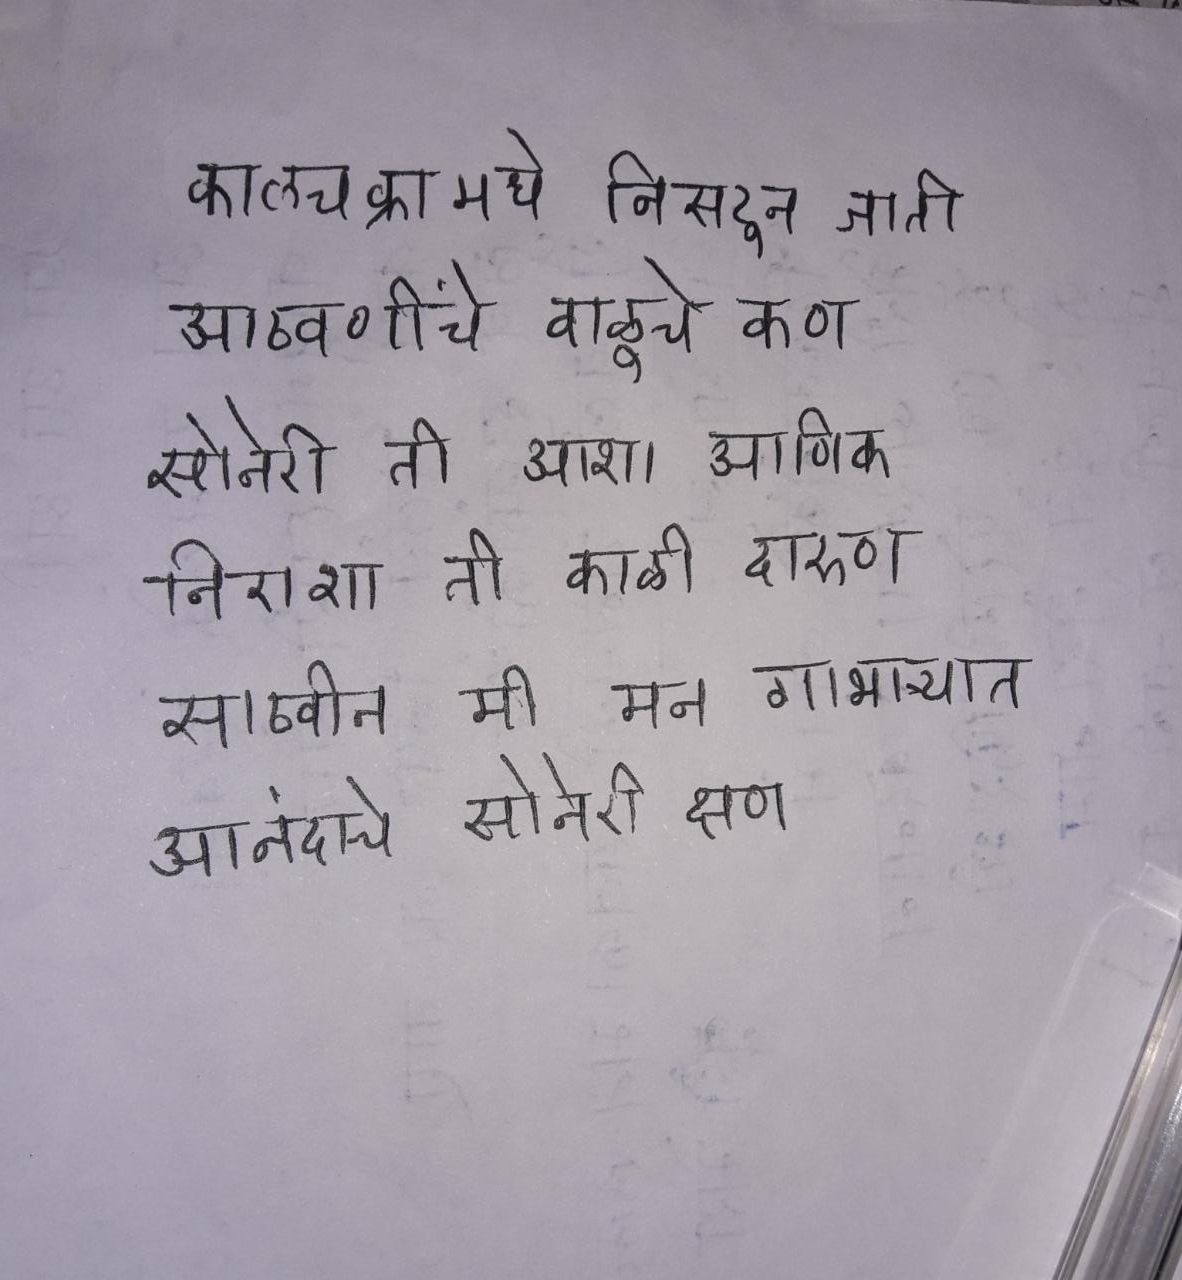 कालचक्रामधे निसटून जाती
आठवणींचे वाळूचे कण
सोनेरी ती आशा आणिक
निराशा ती काळी दारुण
साठवीन मी मन गाभाऱ्यात
आनंदाचे सोनेरी क्षण